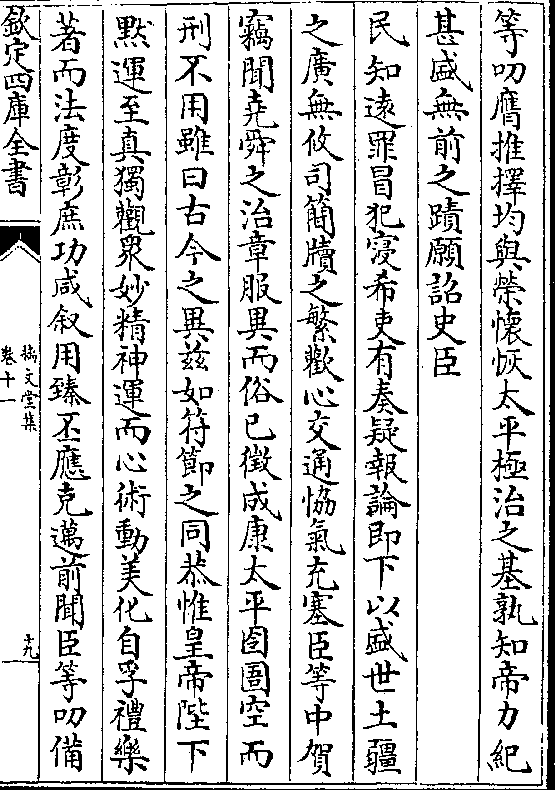 等叨膺推擇均與榮懷恢太平極治之基孰知帝力紀
甚盛無前之蹟願詔史臣
民知逺罪冒犯寖希吏有奏疑報論即下以盛世土疆
之廣無攸司簡牘之繁歡心交通恊氣充塞臣等中賀
竊聞堯舜之治章服異而俗已徵成康太平囹圄空而
刑不用雖曰古今之異兹如符節之同恭惟皇帝陛下
黙運至真獨觀衆妙精神運而心術動美化自孚禮樂
著而法度彰庶功咸叙用臻丕應克邁前聞臣等叨備
欽定四庫全書
摛文堂集
卷十一
十九